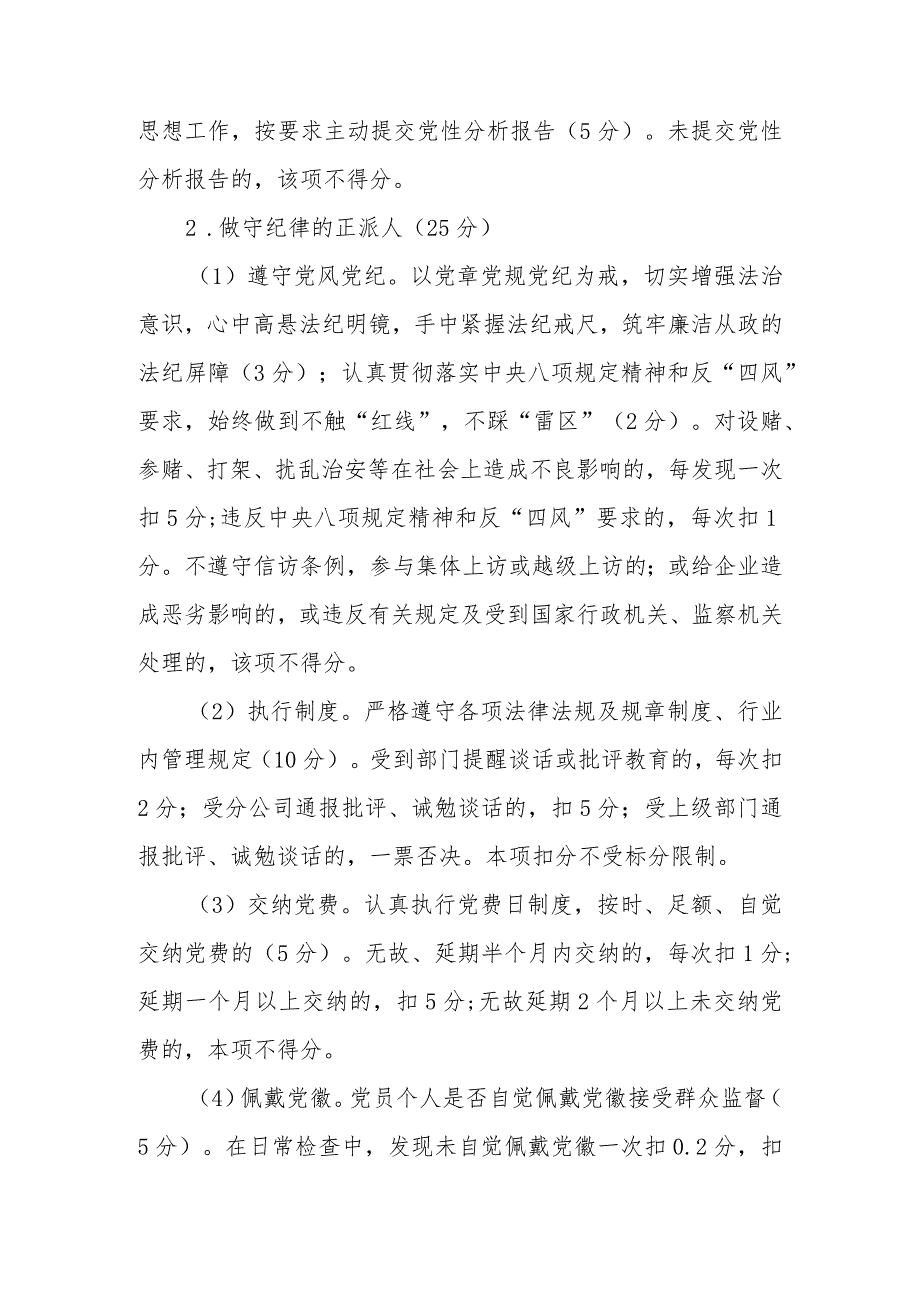 思想工作，按要求主动提交党性分析报告（5 分）。未提交党性
分析报告的，该项不得分。
2 .做守纪律的正派人（25 分）
（1）遵守党风党纪。以党章党规党纪为戒，切实增强法治
意识，心中高悬法纪明镜，手中紧握法纪戒尺，筑牢廉洁从政的
法纪屏障（3 分）；认真贯彻落实中央八项规定精神和反“四风”
要求，始终做到不触“红线”，不踩“雷区”（2 分）。对设赌、
参赌、打架、扰乱治安等在社会上造成不良影响的，每发现一次
扣 5 分;违反中央八项规定精神和反“四风”要求的，每次扣 1
分。不遵守信访条例，参与集体上访或越级上访的；或给企业造
成恶劣影响的，或违反有关规定及受到国家行政机关、监察机关
处理的，该项不得分。
（2）执行制度。严格遵守各项法律法规及规章制度、行业
内管理规定（10 分）。受到部门提醒谈话或批评教育的，每次扣
2 分；受分公司通报批评、诫勉谈话的，扣 5 分；受上级部门通
报批评、诫勉谈话的，一票否决。本项扣分不受标分限制。
（3）交纳党费。认真执行党费日制度，按时、足额、自觉
交纳党费的（5 分）。无故、延期半个月内交纳的，每次扣 1 分;
延期一个月以上交纳的，扣 5 分;无故延期 2 个月以上未交纳党
费的，本项不得分。
（4）佩戴党徽。党员个人是否自觉佩戴党徽接受群众监督（
5 分）。在日常检查中，发现未自觉佩戴党徽一次扣 0.2 分，扣